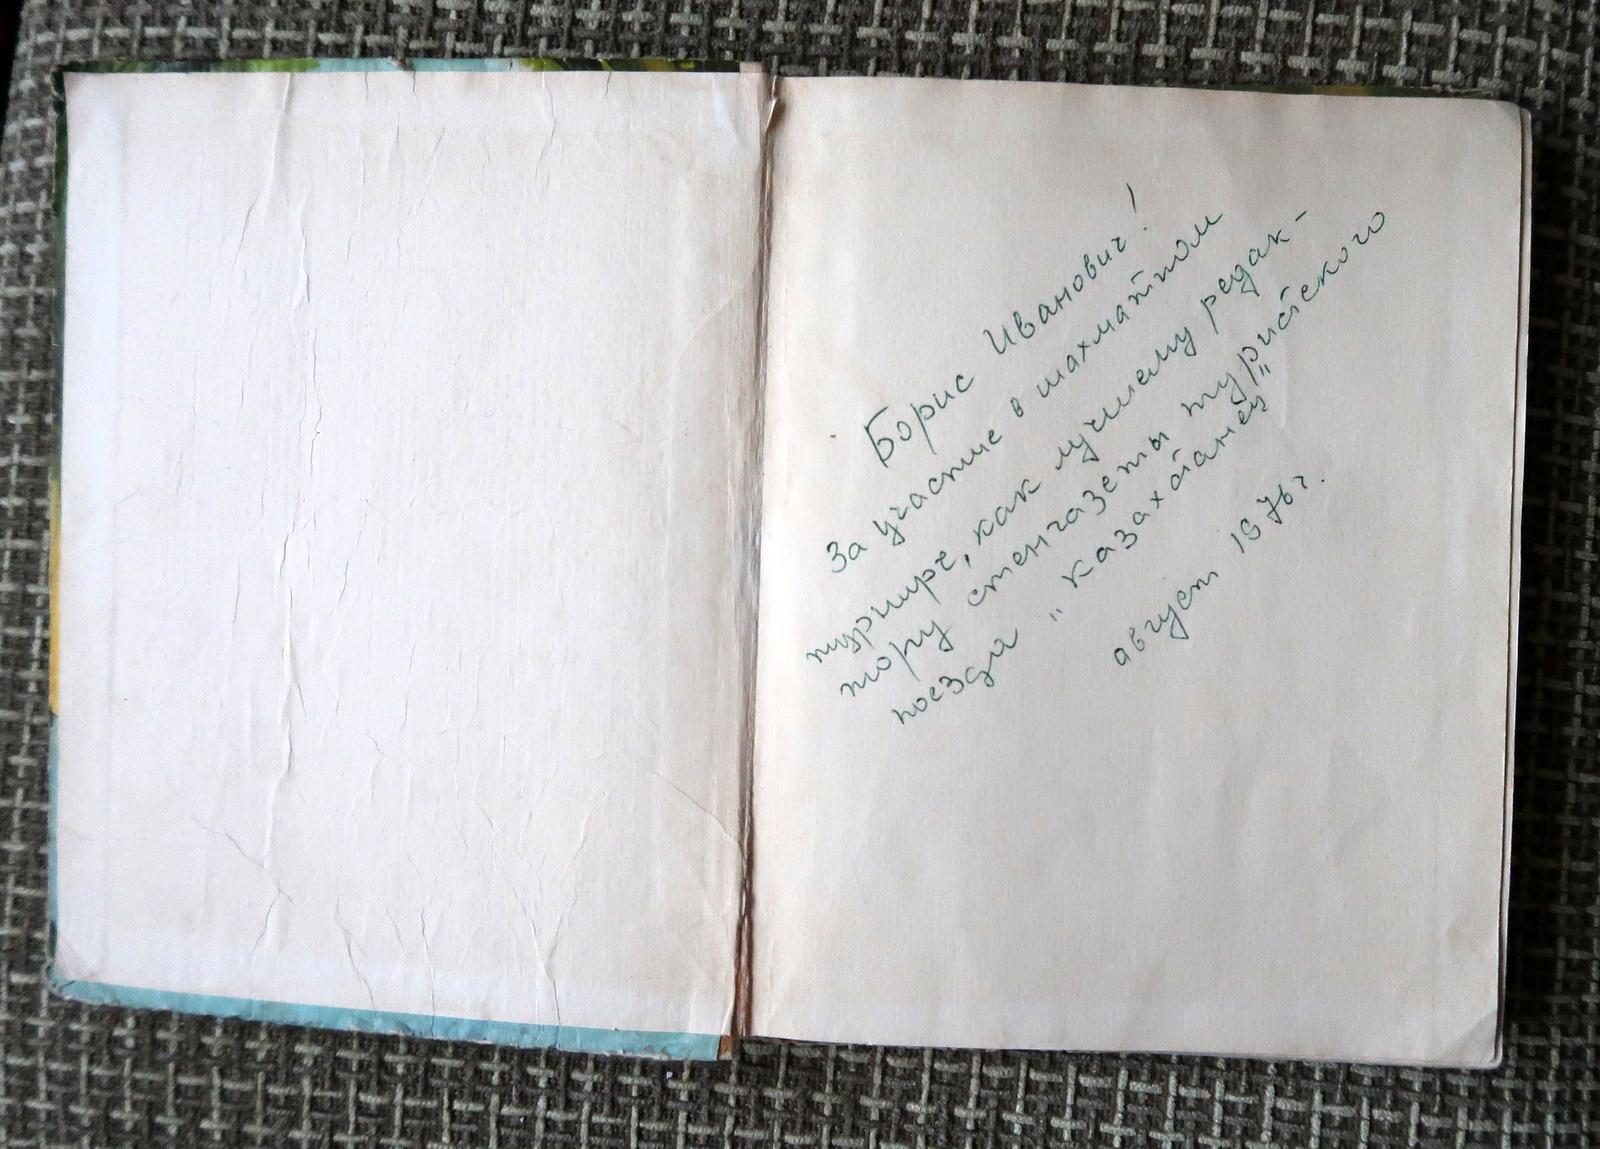 Борис Иванович!
За участие в шахматном
турнире, как лучшему редак-
тору стенгазеты туристского
поезда „Казахстанец"
август 1976 г.